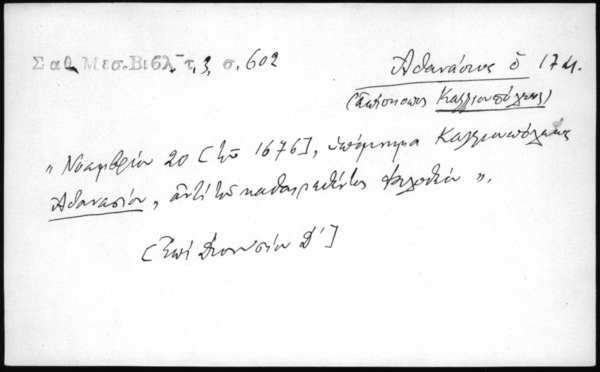 Σαθ. Μεσ. Βιβλ. τ. 3, σ. 602
Ἀθανάσιος ὁ 174.
(ἐπίσκοπος Καλλιουπόλεως)
"Νοεμβρίου 20 [τοῦ 1676], ὑπόμνημα Καλλιουπόλεως
Ἀθανασίου, ἀντὶ τοῦ καθαιρεθέντος Φιλοθέου".
[Ἐπὶ Διονυσίου Δ']